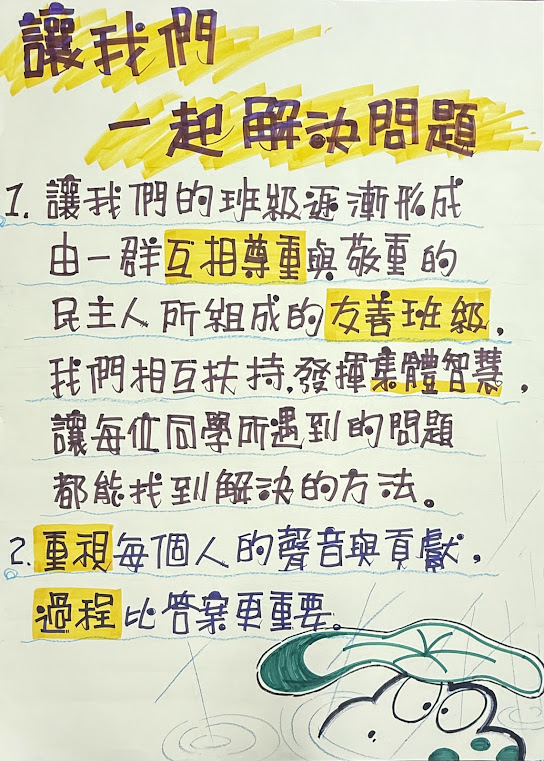 讓我們
一起解決問題
1. 讓我們的班級逐漸形成
由一群互相尊重與敬重的
民主人所組成的友善班級，
我們相互扶持，發揮集體智慧，
讓每位同學所遇到的問題
都能找到解決的方法。
2. 重視每個人的聲音與貢獻，
過程比答案更重要。